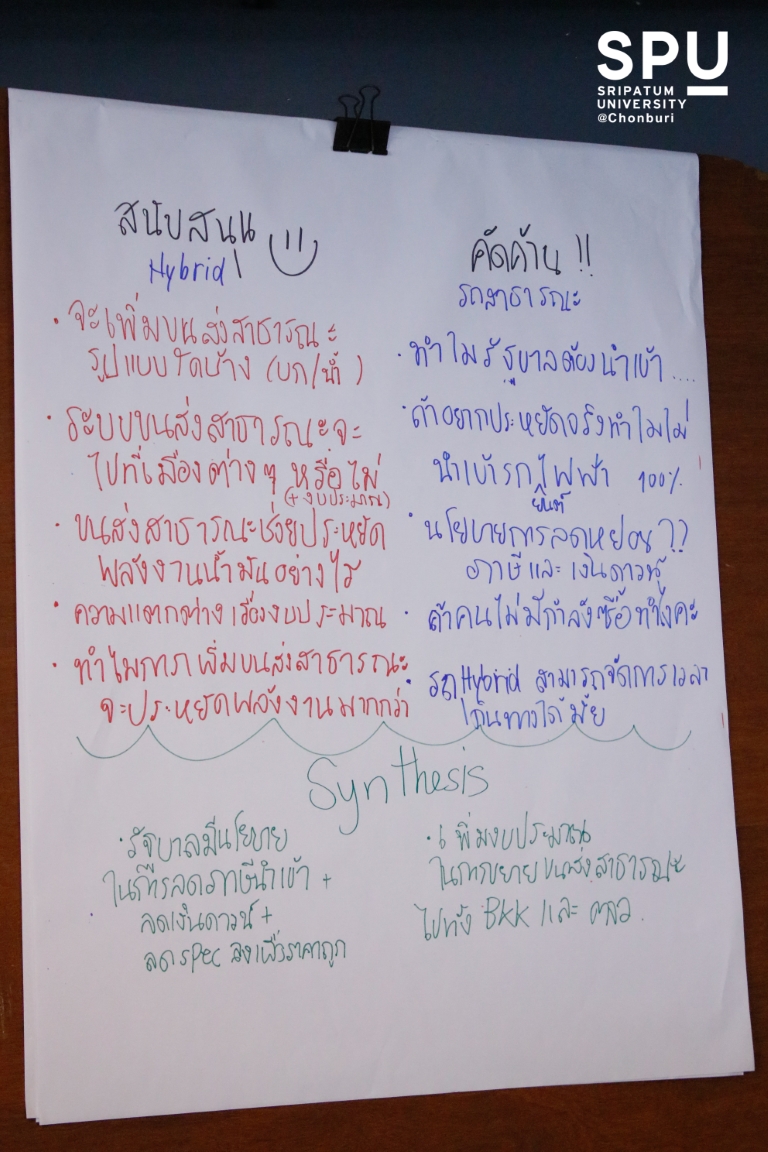 SPU
SRIPATUM
UNIVERSITY
@Chonburi
สนับสนุน
Hybrid
• จะเพิ่มขนส่งสาธารณะ
รูปแบบใดบ้าง (บก/น้ำ)
• ระบบขนส่งสาธารณะจะ
ไปที่เมืองต่างๆ หรือไม่
(+ งบประมาณ)
• ขนส่งสาธารณะช่วยประหยัด
พลังงานน้ำมันอย่างไร
• ความแตกต่างเรื่องงบประมาณ
• ทำไมการเพิ่มขนส่งสาธารณะ
จะประหยัดพลังงานมากกว่า
คัดค้าน !!
รถสาธารณะ
• ทำไมรัฐบาลต้องนำเข้า ....
• ถ้าอยากประหยัดจริงทำไมไม่
นำเข้ารถไฟฟ้า 100%
ยนต์
• นโยบายการลดหย่อน ??
ภาษีและเงินดาวน์
• ถ้าคนไม่มีกำลังซื้อทำไงคะ
• รถHybrid สามารถจัดการเวลา
เดินทางได้มั้ย
Synthesis
• รัฐบาลมีนโยบาย
ในการลดภาษีนำเข้า +
ลดเงินดาวน์ +
ลด spec ลงเพื่อราคาถูก
• เพิ่มงบประมาณ
ในการขยายขนส่งสาธารณะ
ไปทั้ง BKK และ ตจว.